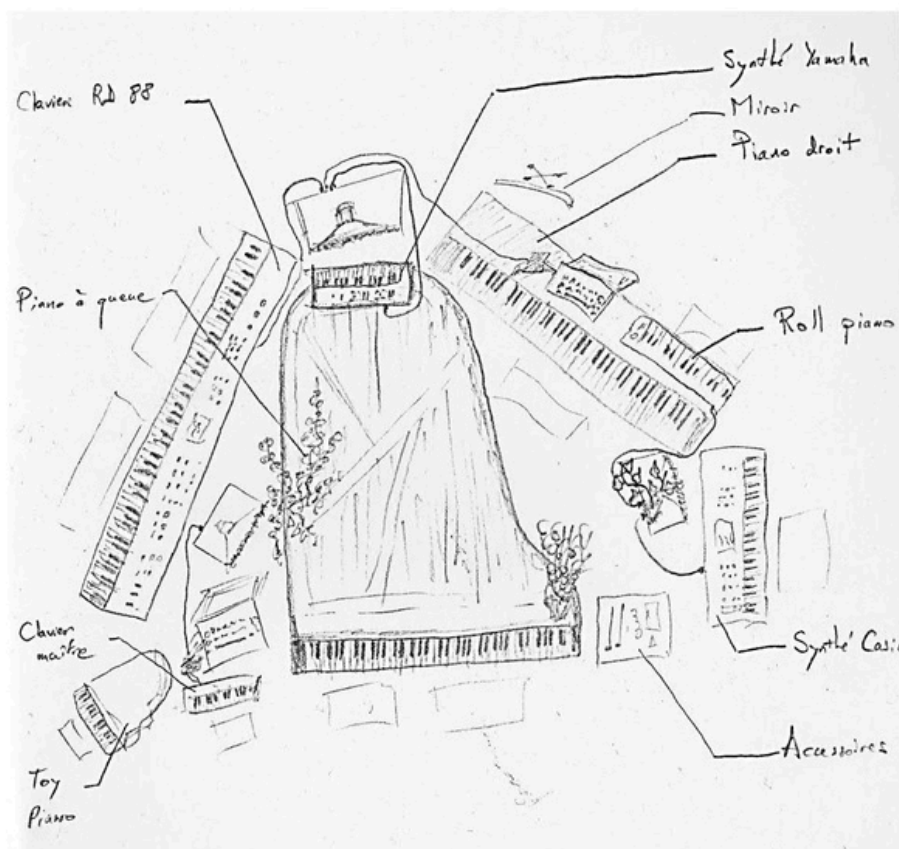 Clavier RD 88
Synthé Yamaha
Miroir
Piano droit
Piano à queue
Roll piano
Clavier
maître
Synthé Casi
Toy
Piano
Accessoires